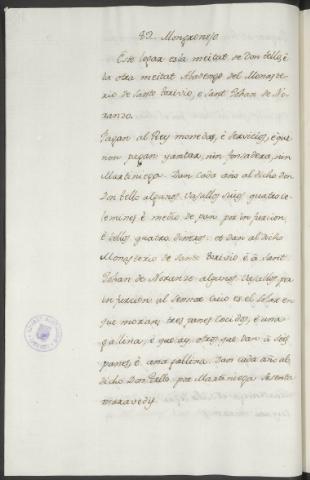 82. Mongronejo
Este logar era meitat de Don Tello, é
la otra meitat Abadengo del Monaste-
rio de Santo Toribio, e Sant Johan de No-
ranzo.
Pagan al Rey monedas, é servicios, é que
non pagan yantar, nin fonsadera, nin
Martiniega. Dan cada año al dicho Don
Don Tello algunos vasallos suios quatro ce-
lemines, é medio de pan por infurcion,
é dellos quatro dineros: et dan al dicho
Monesterio de Santo Toribio, é á Sant
Johan de Noranzo algunos vasallos por
infurcion al Sennor cuio es el Solar en
que moraren, tres panes cocidos, é una
galina, é que ay otros que dan á seis
panes, é una gallina. Dan cada año al
dicho Don Tello por Martiniega sesenta
maravedis.